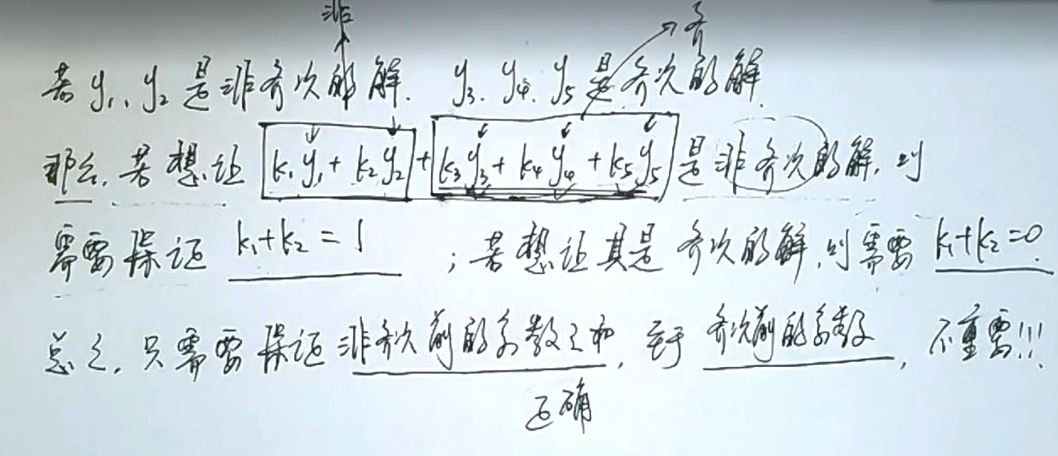 非 齐
若 y₁、y₂ 是非齐次的解. y₃. y₄. y₅ 是齐次的解.
那么, 若想让 k₁y₁ + k₂y₂ + k₃y₃ + k₄y₄ + k₅y₅ 是非齐次的解, 则
需要保证 k₁+k₂ = 1 ; 若想让其是齐次的解, 则需要 k₁+k₂=0.
总之, 只需要保证 非齐次前的系数之和, 至于 齐次前的系数, 不重要!!!
正确